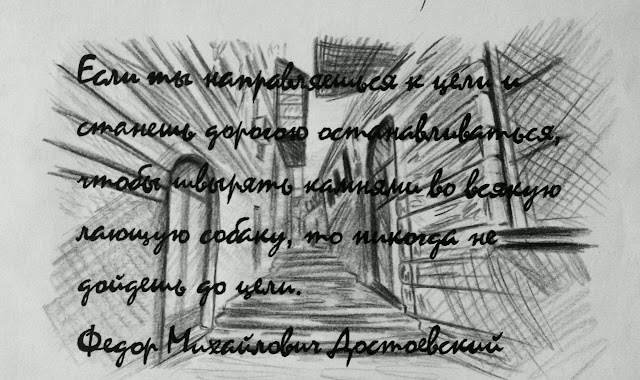 Если ты направляешься к цели и
станешь дорогою останавливаться,
чтобы швырять камнями во всякую
лающую собаку, то никогда не
дойдешь до цели.
Федор Михайлович Достоевский